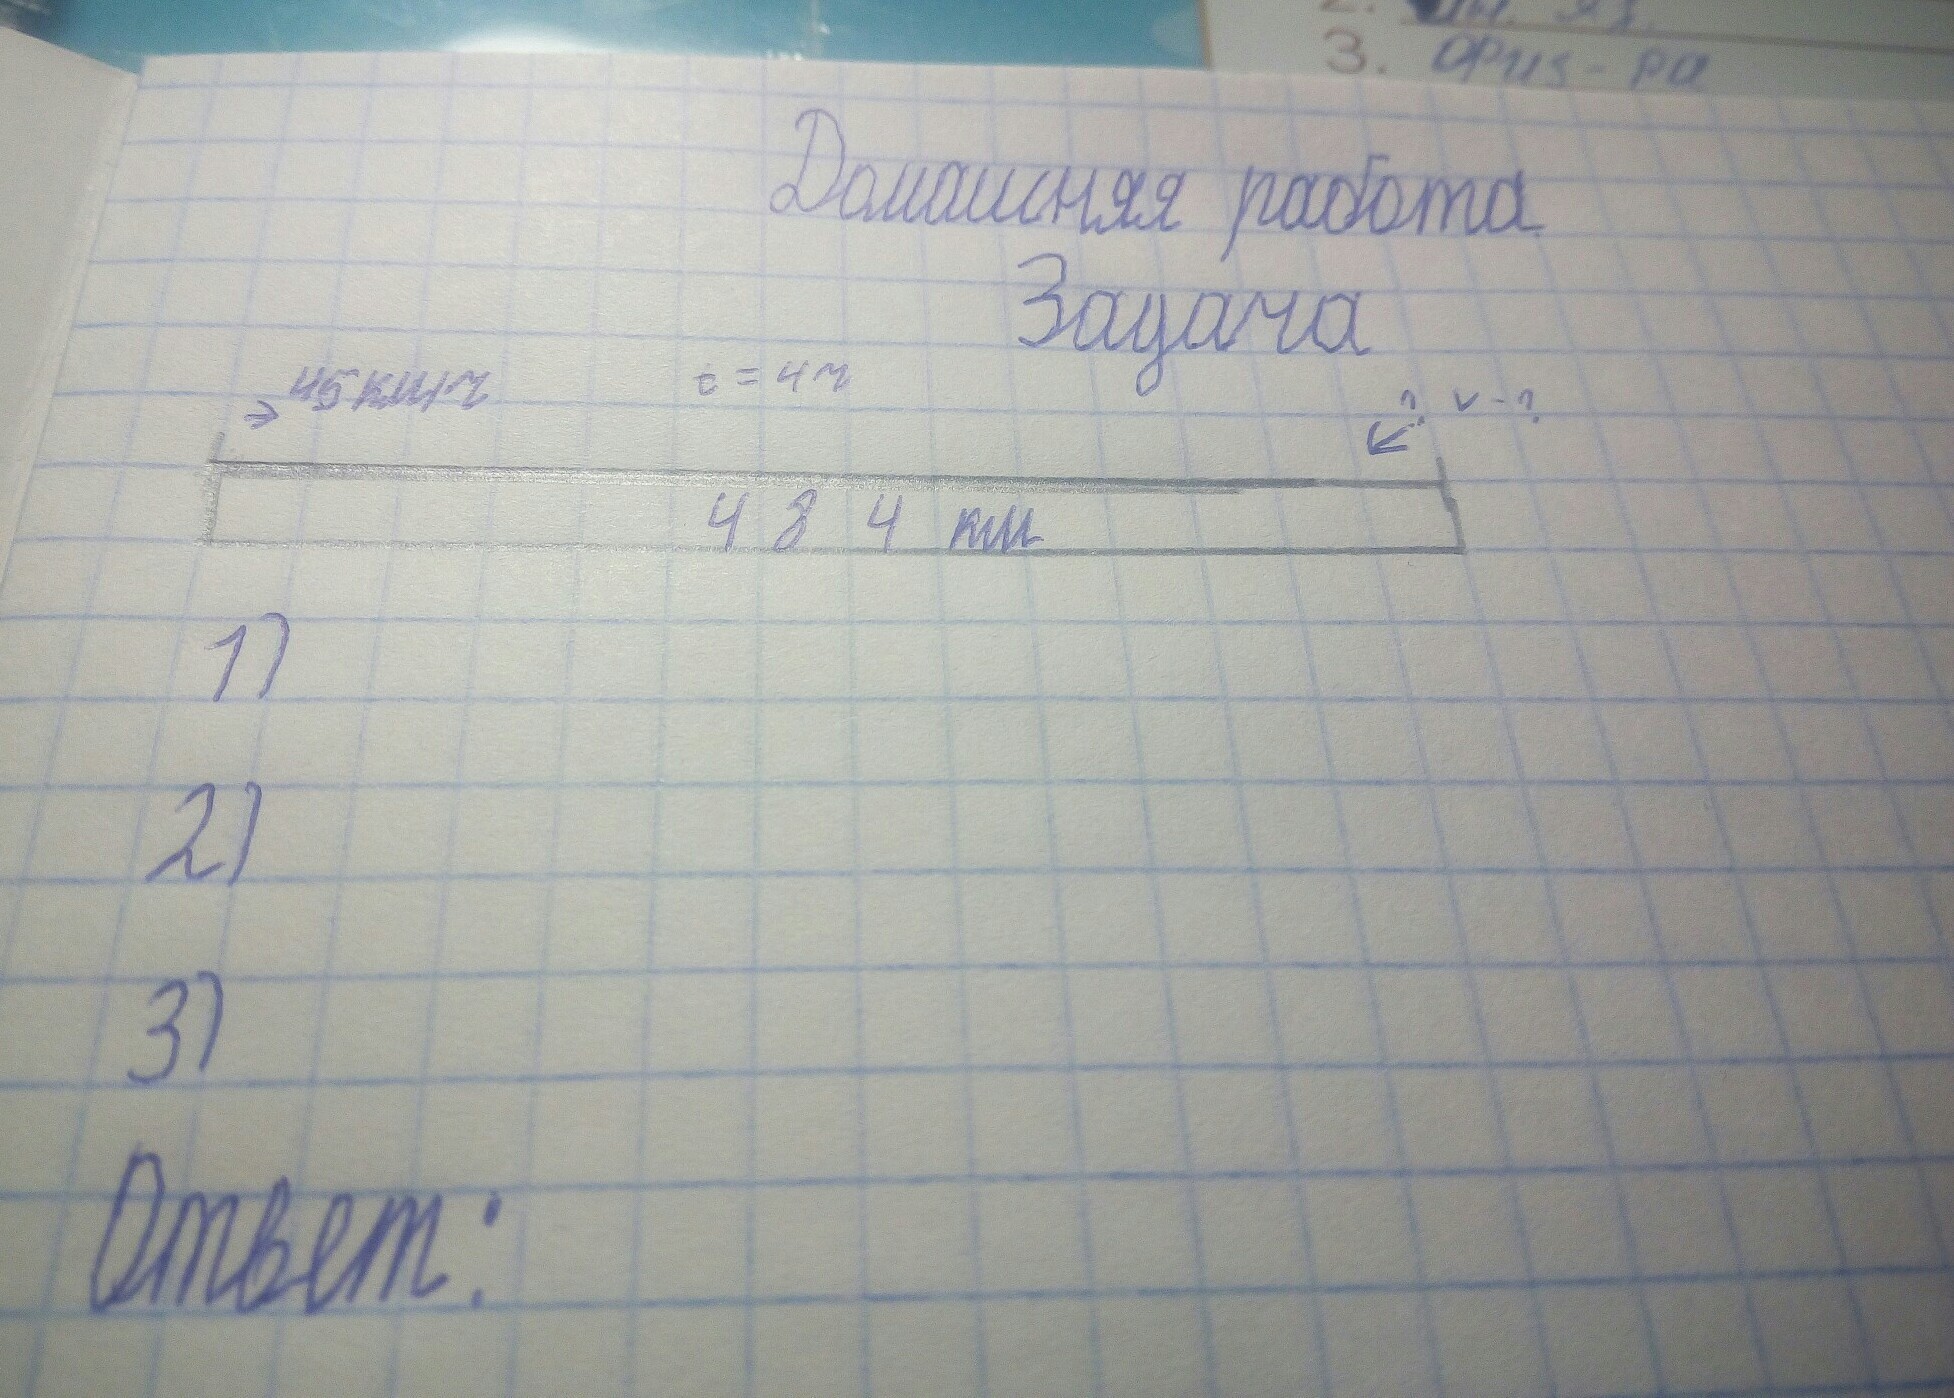 3. физ-ра
Домашняя работа
Задача
45 км/ч t = 4 ч ? v - ?
4 8 4 км
1)
2)
3)
Ответ: